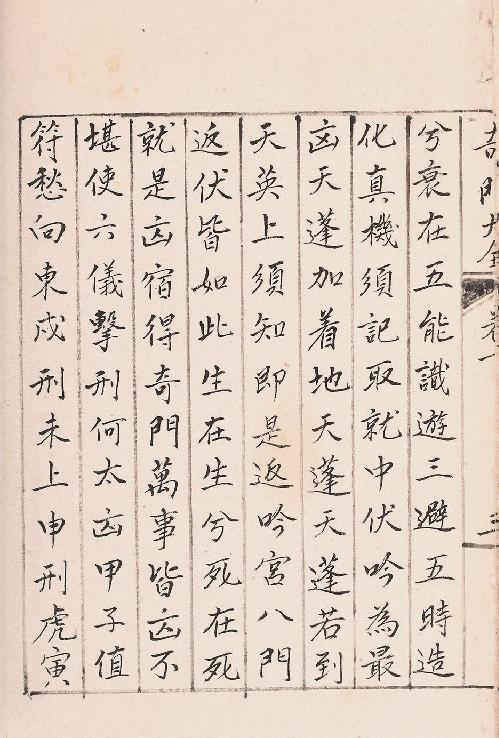 奇門大全
卷一
三
兮衰在五能識遊三避五時造
化真機須記取就中伏吟為最
凶天蓬加着地天蓬天蓬若到
天英上須知即是返吟宮八門
返伏皆如此生在生兮死在死
就是凶宿得奇門萬事皆凶不
堪使六儀擊刑何太凶甲子值
符愁向東戍刑未上申刑虎寅